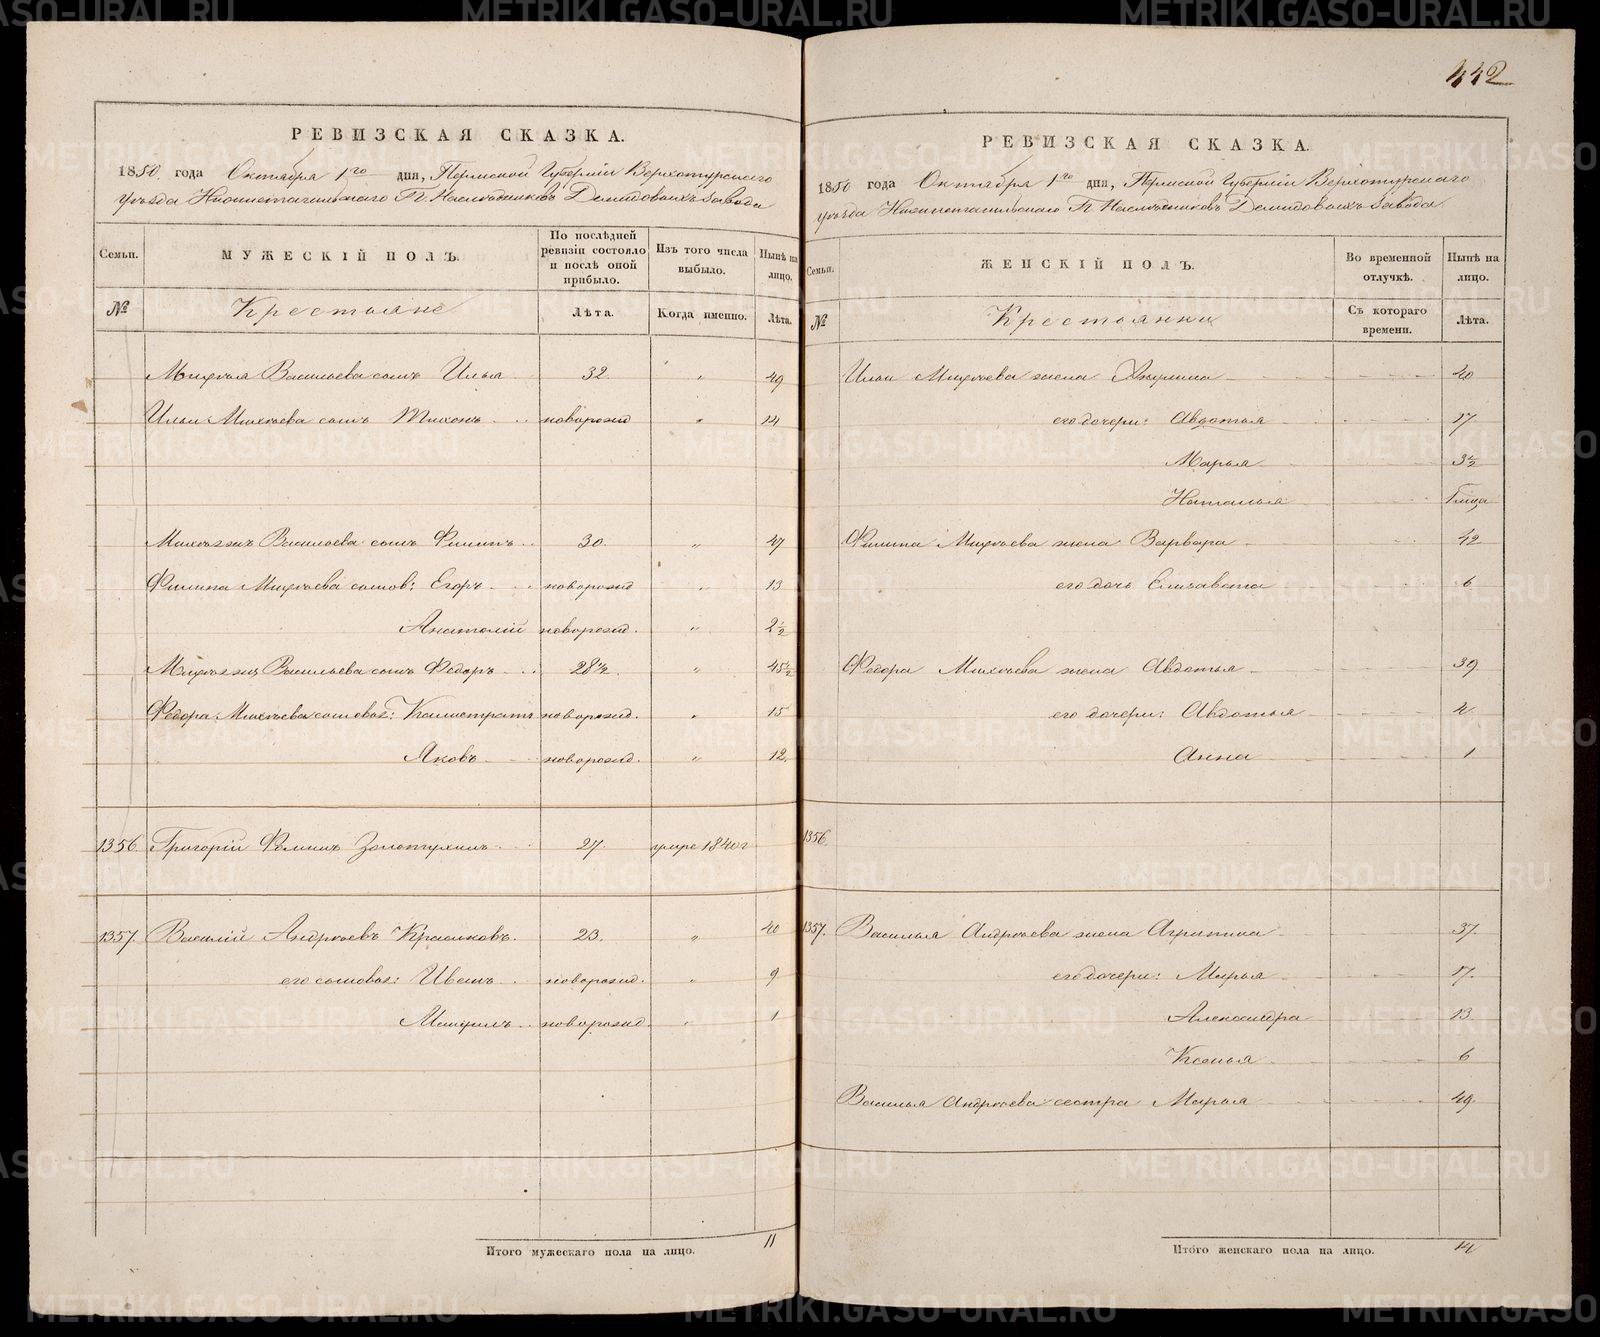 442
РЕВИЗСКАЯ СКАЗКА.
1850 года Октября 1го дня, Пермской Губерніи Верхотурскаго
уѣзда Нижнетагильскаго Г. Наслѣдниковъ Демидовыхъ завода
Семьи.
МУЖЕСКІЙ ПОЛЪ.
По послѣдней ревизіи состояло и послѣ оной прибыло.
Изъ того числа выбыло.
Нынѣ на лицо.
№
Крестьяне
Лѣта.
Когда именно.
Лѣта.
Михѣя Васильева сынъ Илья 32 " 49
Ильи Михѣева сынъ Тихонъ новорожд " 14
Васильева сынъ Филипъ 30. " 47
Филипа Михѣева сынов: Егоръ новорожд " 13
Анатолій новорожд. " 2½
Васильева сынъ Федоръ 28½. " 45½
Федора Михѣева сыновья: Калистратъ новорожд. " 15
Яковъ новорожд. " 12.
1356. Григорій Фоминъ Золотухинъ 27. умре 1840 г
1357. Василій Андреевъ 23. " 40
его сыновья: Иванъ новорожд. " 9
новорожд. " 1
Итого мужескаго пола на лицо. 11
РЕВИЗСКАЯ СКАЗКА.
1850 года Октября 1го дня, Пермской Губерніи Верхотурскаго
уѣзда Нижнетагильскаго Г. Наслѣдниковъ Демидовыхъ завода
Семьи.
ЖЕНСКІЙ ПОЛЪ.
Во временной отлучкѣ.
Нынѣ на лицо.
№
Крестьянки
Съ котораго времени.
Лѣта.
Ильи Михѣева жена Акулина 40
его дочери: Авдотья 17
Марья 3½
Наталья
Филипа Михѣева жена Варвара 42
его дочь Елизавета 6
Федора Михѣева жена Авдотья 39
его дочери: Авдотья 4
Анна 1
1356.
1357. Василья Андреева жена 37.
его дочери: Марья 17.
Александра 13
Ксенья 6
Василья Андреева сестра Марья 49.
Итого женскаго пола на лицо. 14
METRIKI.GASO-URAL.RU